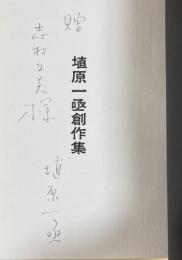 贈
志村立美様
埴原一亟
埴原一亟創作集